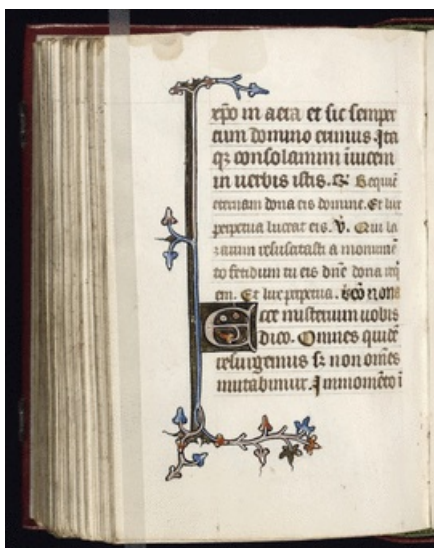 xp̄o in aera et sic semper
cum domino erimus. Ita
qꝫ consolamini iuicem
in uerbis istis. R̶ Requiē
eternam dona eis domine. Et lux
perpetua luceat eis. V̶. Qui la
zarum resuscitasti a monumē
to fetidum tu eis dn̄e dona req̄
em. Et lux perpetua. non
Ecce misterium uobis
dico. Omnes quidē
resurgemus sꝫ non om̄es
mutabimur. In momēto i